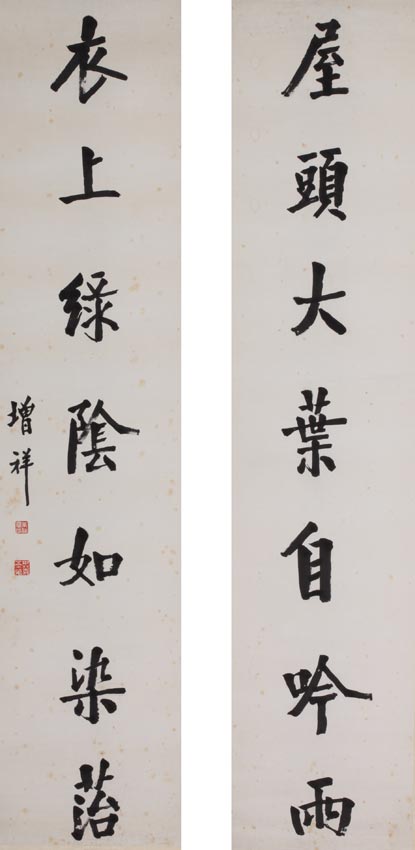 屋頭大葉自吟雨
衣上綠陰如染萿
增祥